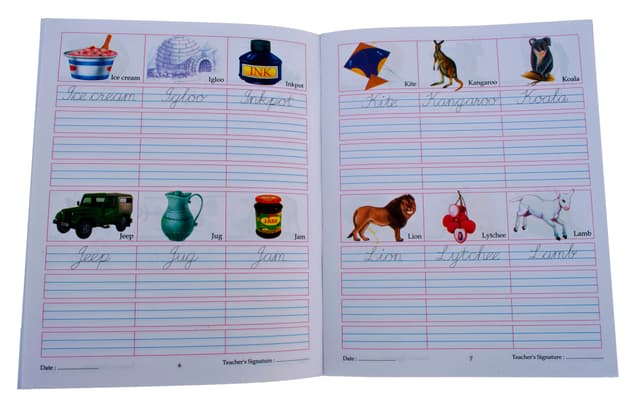 Ice cream Igloo INK Inkpot
Ice cream Igloo Inkpot
Jeep Jug JAM Jam
Jeep Jug Jam
Date : 6 Teacher's Signature :
Kite Kangaroo Koala
Kite Kangaroo Koala
Lion Lytchee Lamb
Lion Lytchee Lamb
Date : 7 Teacher's Signature :